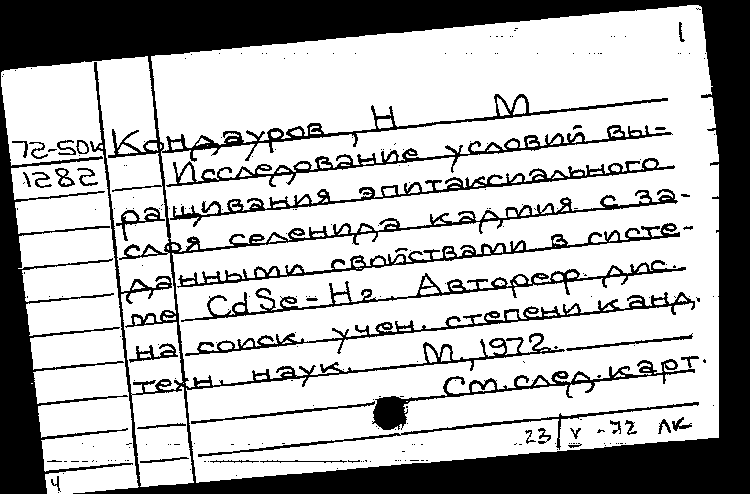 1
72-50к Кондауров, Н М
1282 Исследование условий вы-
ращивания эпитаксиального
слоя селенида кадмия с за-
данными свойствами в систе-
ме CdSe-H2. Автореф. дис.
на соиск. учен. степени канд.
техн. наук. М., 1972.
См. след. карт.
23/V-72 ЛК
4